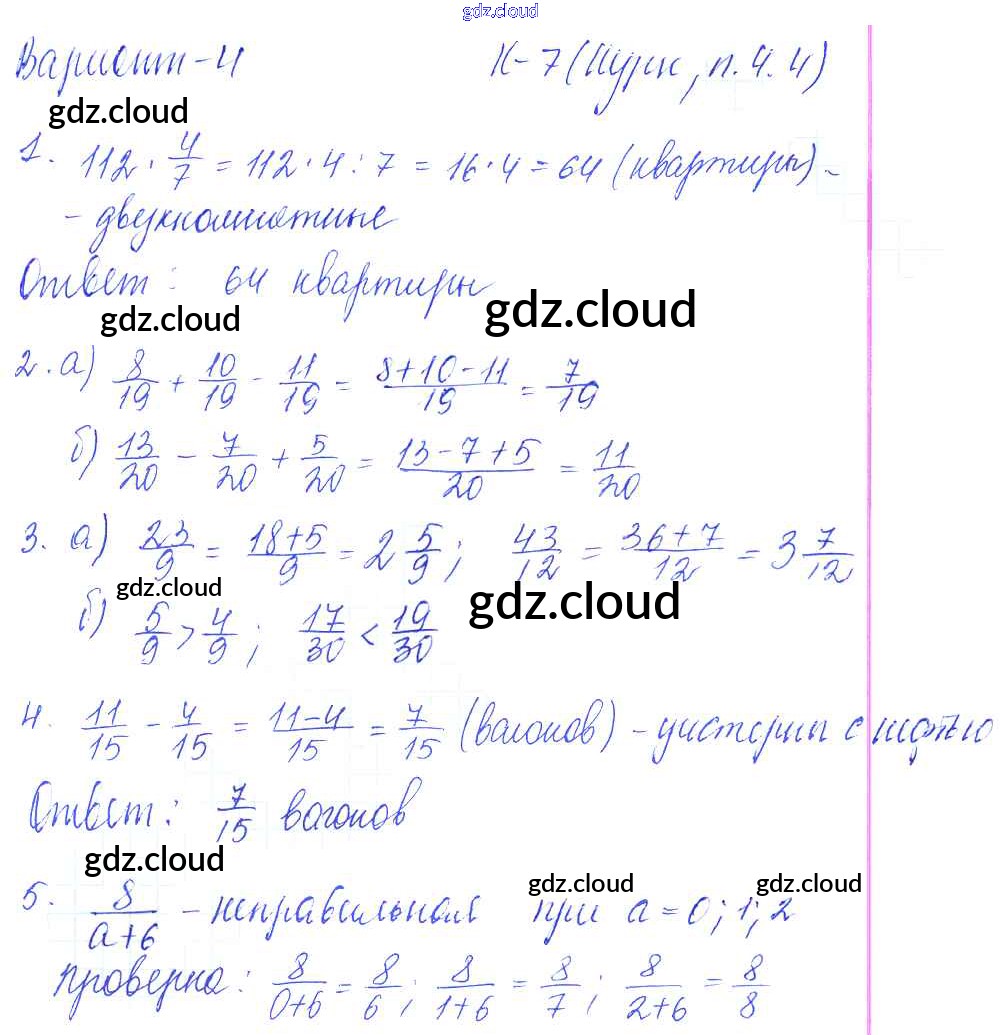 gdz.cloud
Вариант-4 К-7 (Нурк, п.4.4)
gdz.cloud
1. 112 · 4/7 = 112 · 4 : 7 = 16 · 4 = 64 (квартиры) -
- двухкомнатные
Ответ: 64 квартиры
gdz.cloud gdz.cloud
2. а) 8/19 + 10/19 - 11/19 = (8+10-11)/19 = 7/19
б) 13/20 - 7/20 + 5/20 = (13-7+5)/20 = 11/20
3. а) 23/9 = (18+5)/9 = 2 5/9; 43/12 = (36+7)/12 = 3 7/12
gdz.cloud gdz.cloud
б) 5/9 > 4/9; 17/30 < 19/30
4. 11/15 - 4/15 = (11-4)/15 = 7/15 (вагонов) - цистерны с нефтью
Ответ: 7/15 вагонов
gdz.cloud
gdz.cloud gdz.cloud
5. 8/(а+6) - неправильная при а = 0; 1; 2
проверка: 8/(0+6) = 8/6; 8/(1+6) = 8/7; 8/(2+6) = 8/8